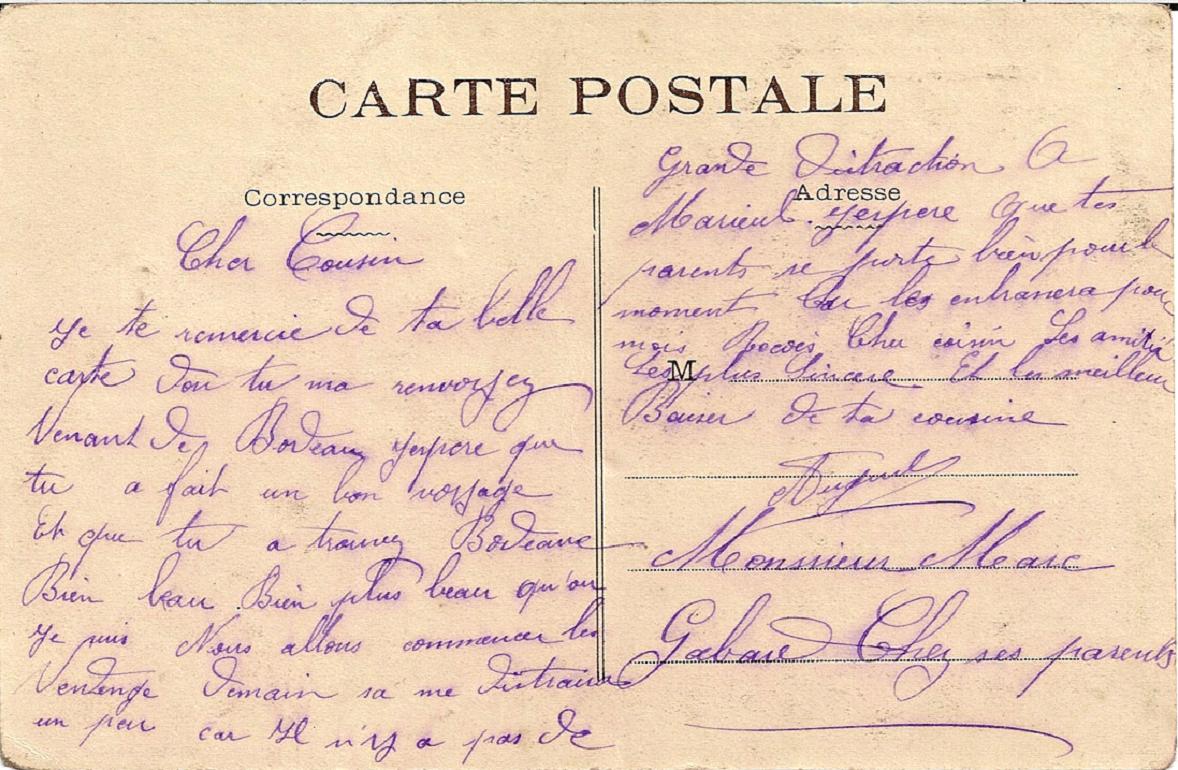 CARTE POSTALE
Correspondance
Cher Cousin
Je te remercie de ta belle
carte dou tu ma renvoyez
Venant de Bordeau jespere que
tu a fait un bon voyage
Et que tu a trouvez Bordeaux
Bien beau Bien plus beau qu'ou
Je suis Nous allons commencer les
Vendenge demain sa me distraira
un peu car Il n'y a pas de
Adresse
Grande distraction A
Marieul . jespere que tes
parents se porte bien pour le
moment tu les
mois Cher cousin Les amitié
M
Les plus Sincere Et les meilleur
Baiser de ta cousine
Monsieur Marc
Gabard Chez ses parents